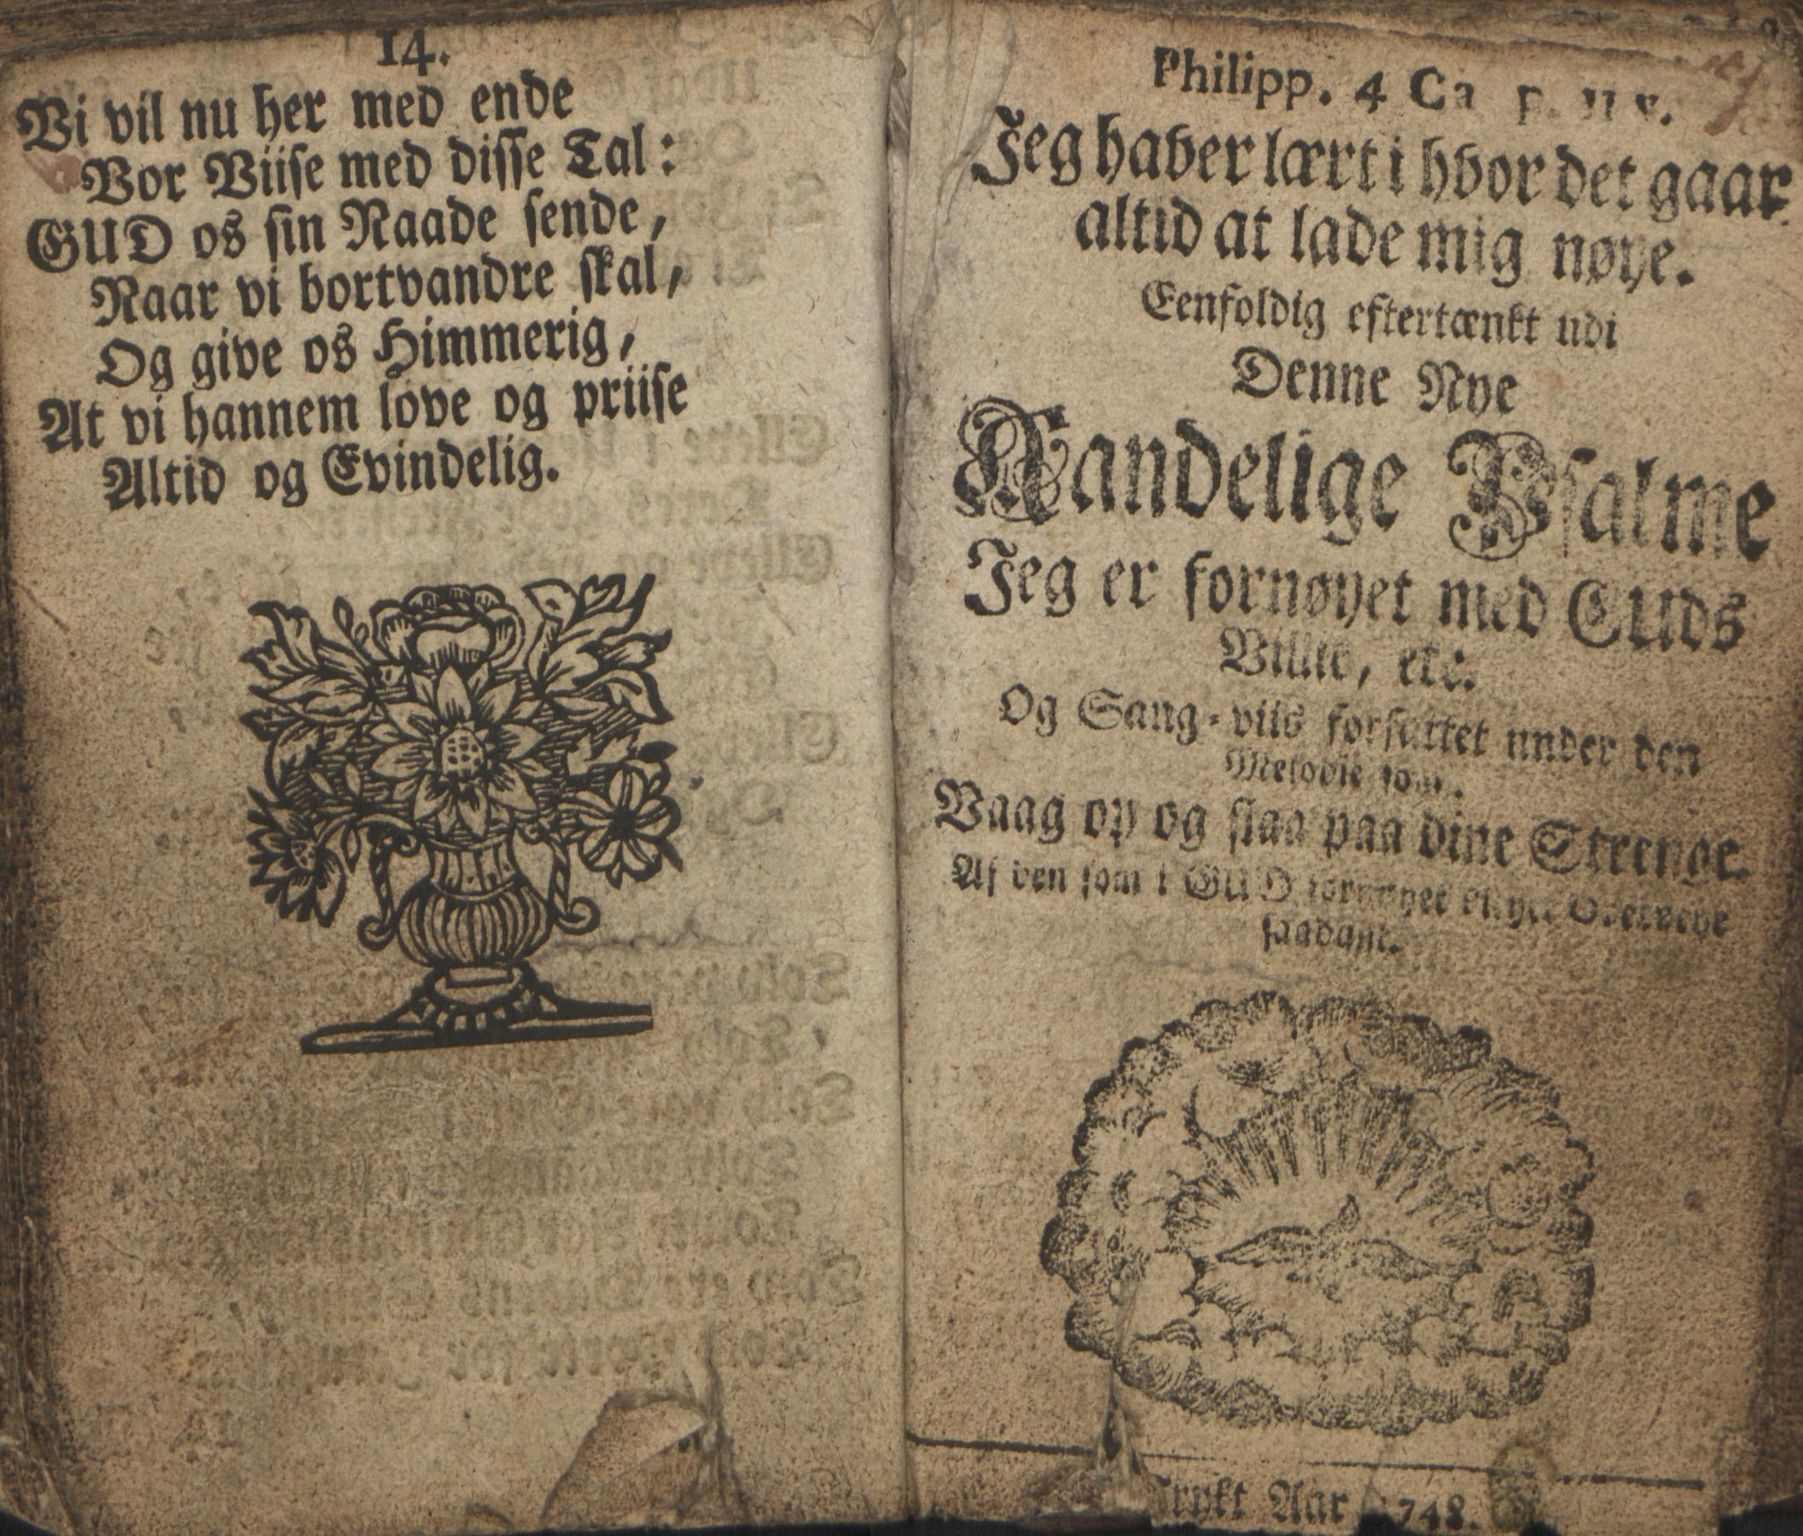 14.
Vi vil nu her med ende
Vor Viise med disse Tal:
GUD os sin Naade sende,
Naar vi bortvandre skal,
Og give os Himmerig,
At vi hannem love og priise
Altid og Evindelig.
Philipp. 4 Cap. 11 v.
Jeg haver lært i hvor det gaar
altid at lade mig nøye.
Eenfoldig eftertænkt udi
Denne Nye
Aandelige Psalme
Jeg er fornøyet med GUds
Villie, etc.
Og Sang-viis forfattet under den
Melodie som.
Vaag op og slaa paa dine Strenge.
Af den som i GUD fornøyet
saadant.
Trykt Aar 1748.